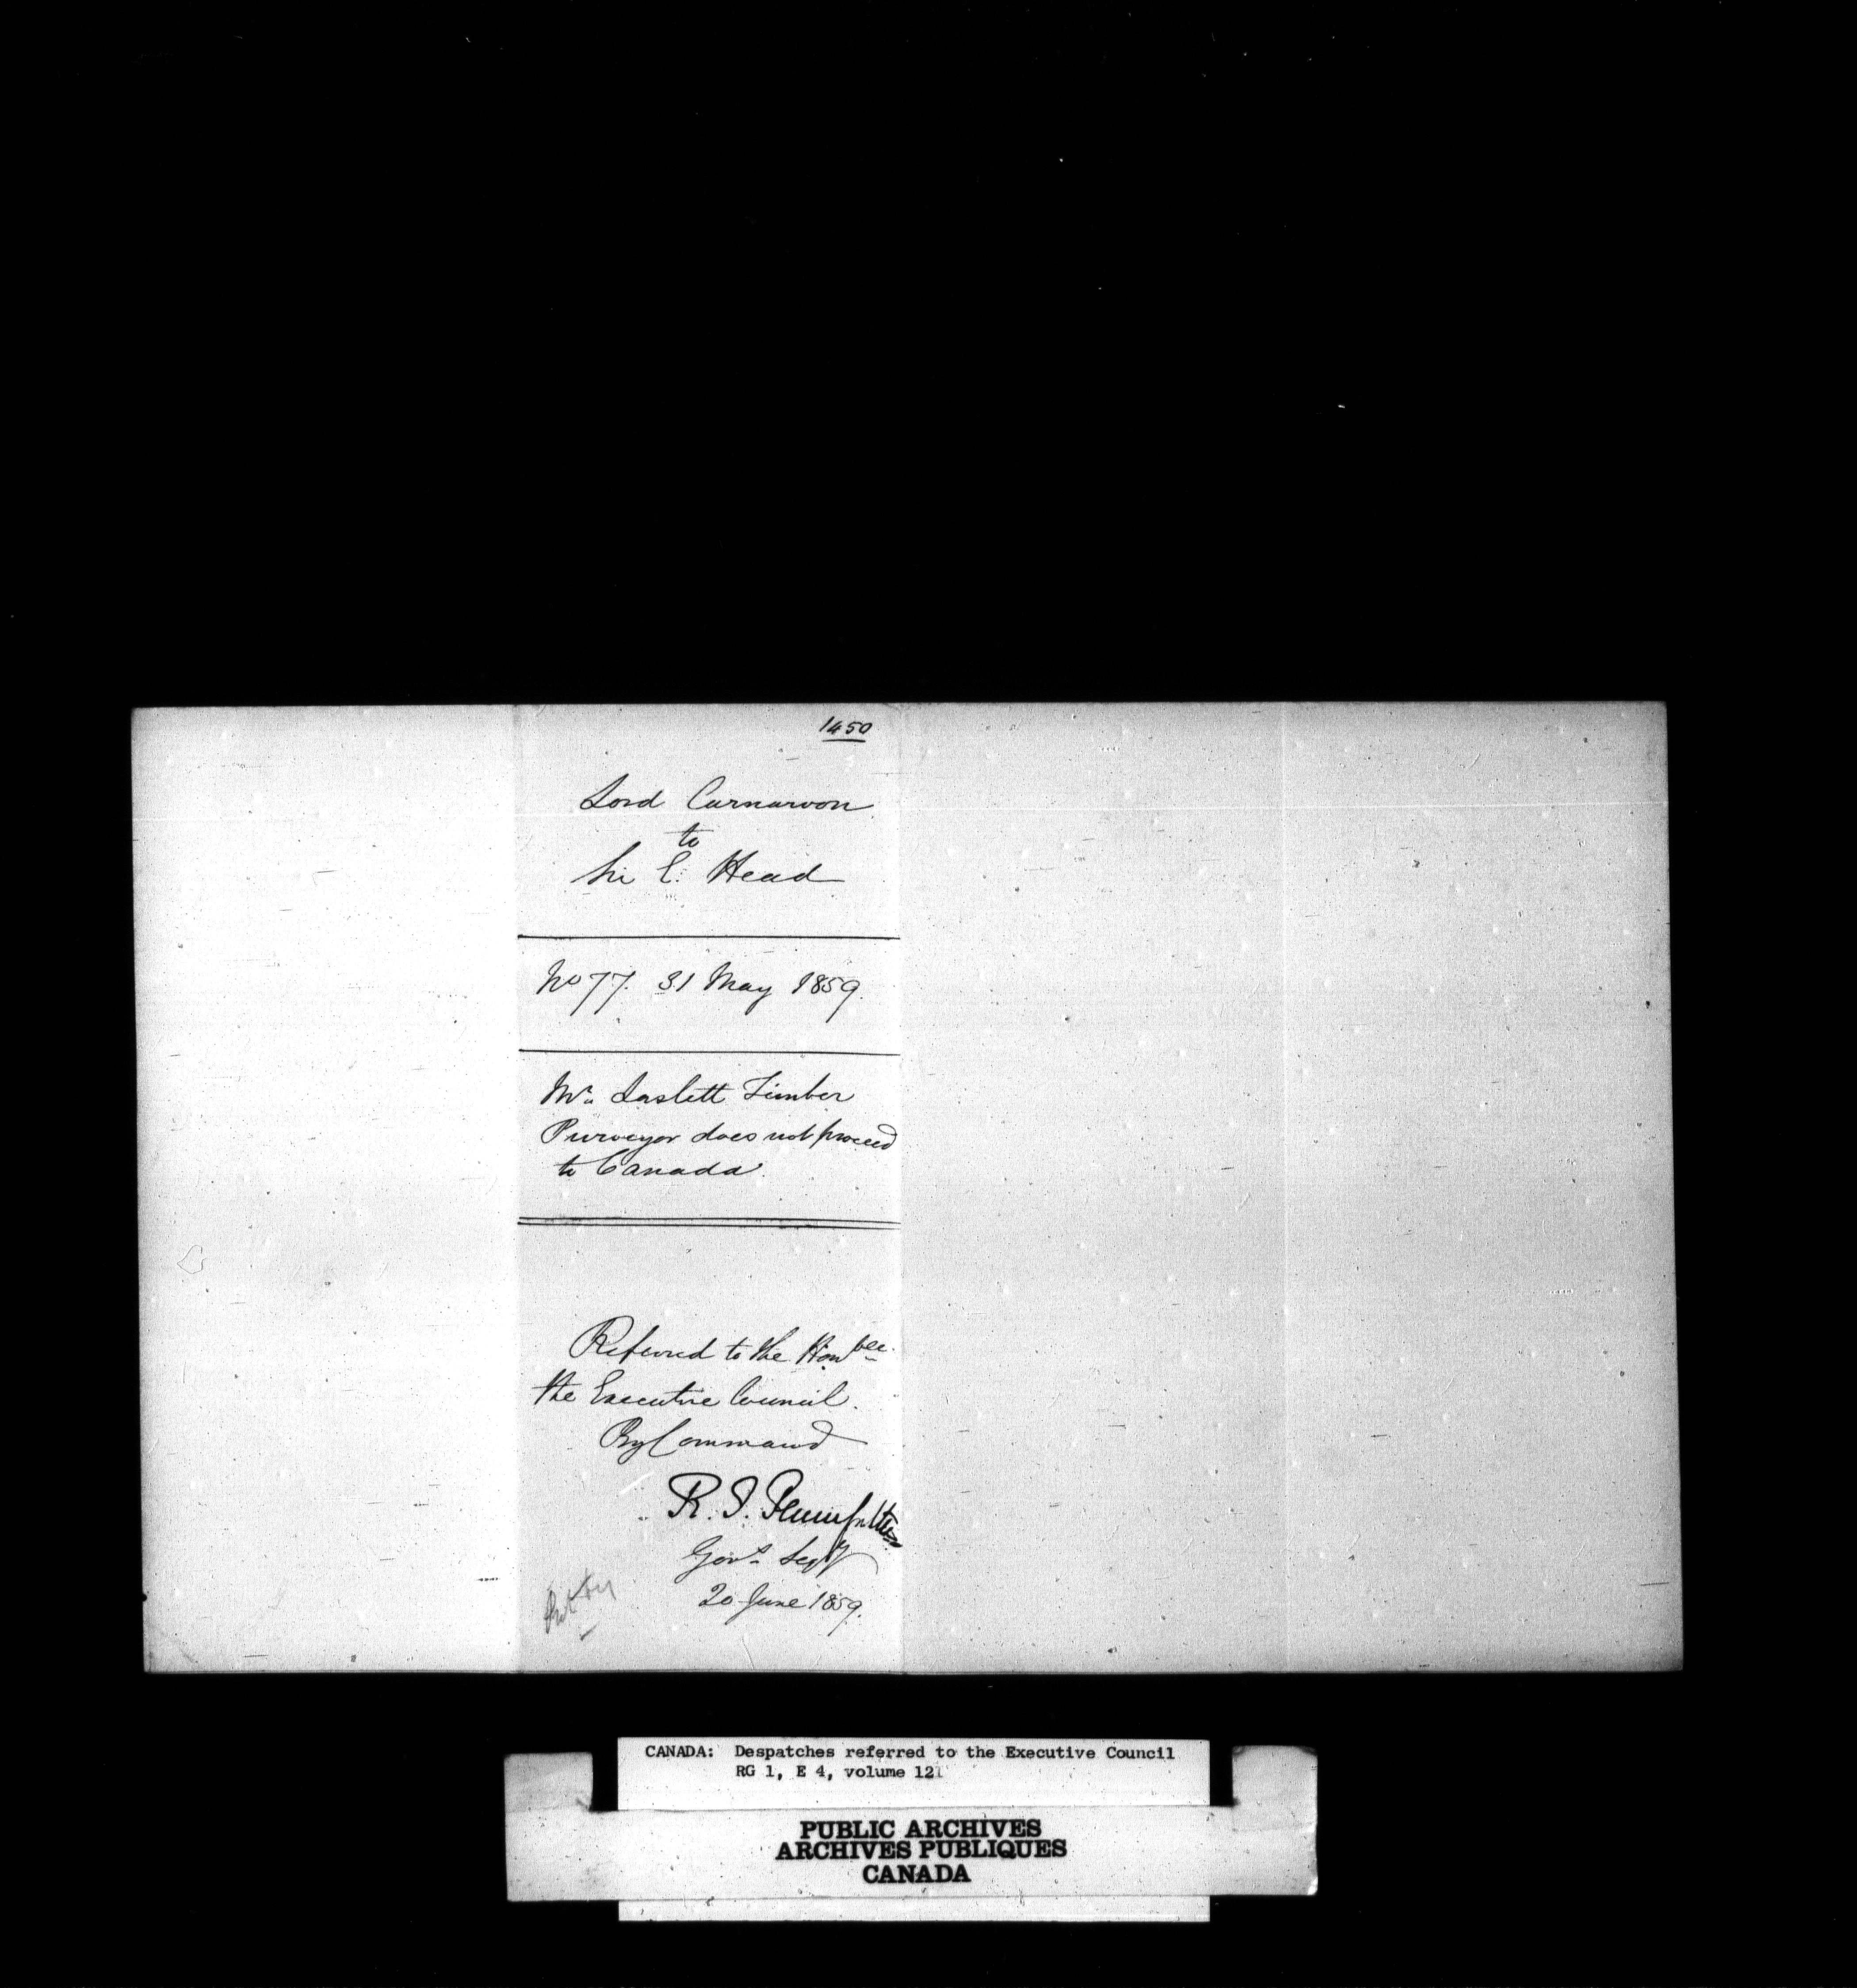 1450
Lord Carnarvon
to
Sir E. Head
No 77. 31 May 1859.
Mr. Laslett Timber
Purveyor does not proceed
to Canada.
Referred to the Honble
the Executive Council.
By Command
R. T. Pennefather
Govr Secy
20 June 1859.
CANADA: Despatches referred to the Executive Council
RG 1, E 4, volume 121
PUBLIC ARCHIVES
ARCHIVES PUBLIQUES
CANADA